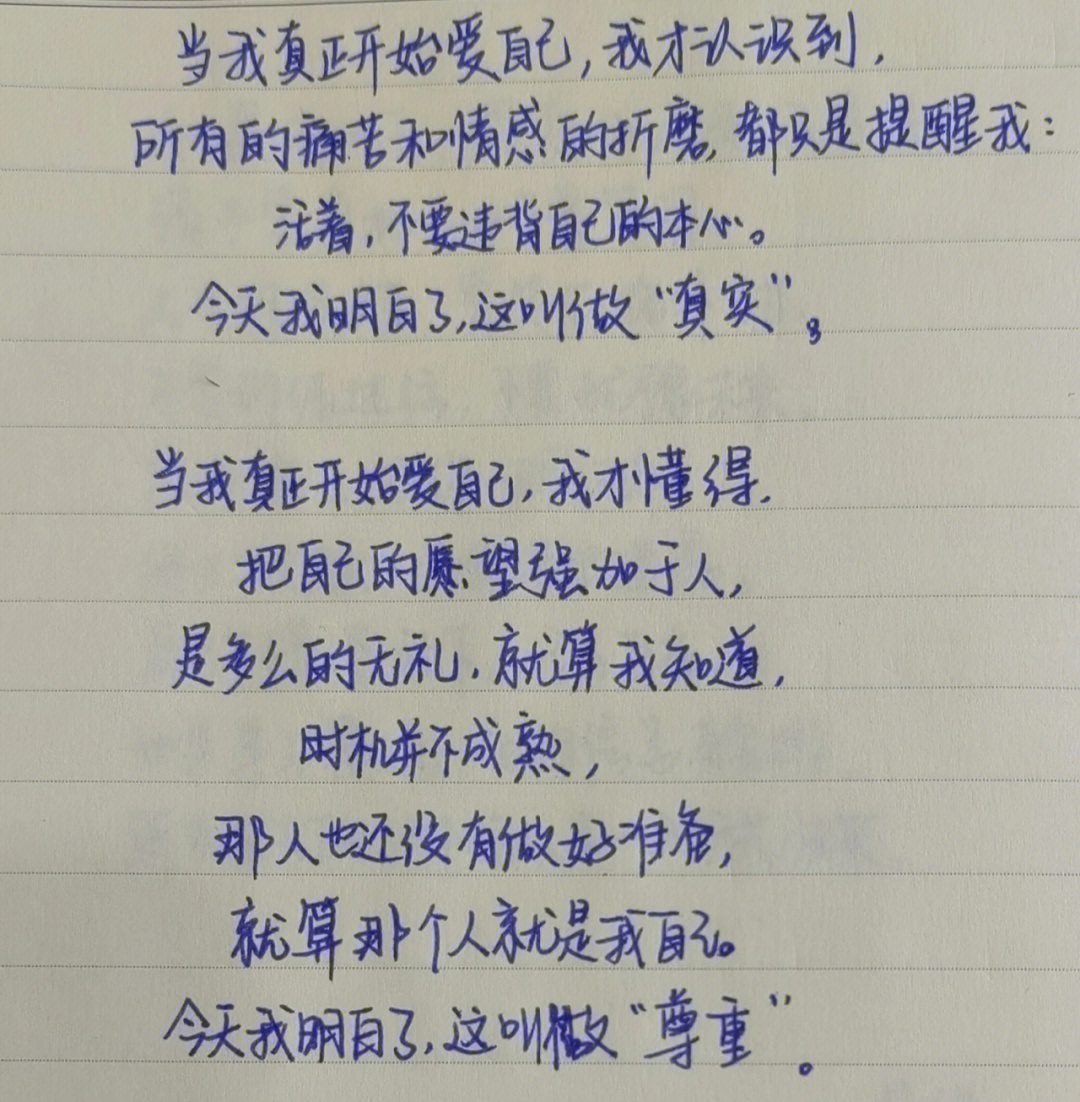 当我真正开始爱自己,我才认识到,
所有的痛苦和情感的折磨,都只是提醒我:
活着,不要违背自己的本心。
今天我明白了,这叫做“真实”。
当我真正开始爱自己,我才懂得,
把自己的愿望强加于人,
是多么的无礼,就算我知道,
时机并不成熟,
那人也还没有做好准备,
就算那个人就是我自己。
今天我明白了,这叫做“尊重”。